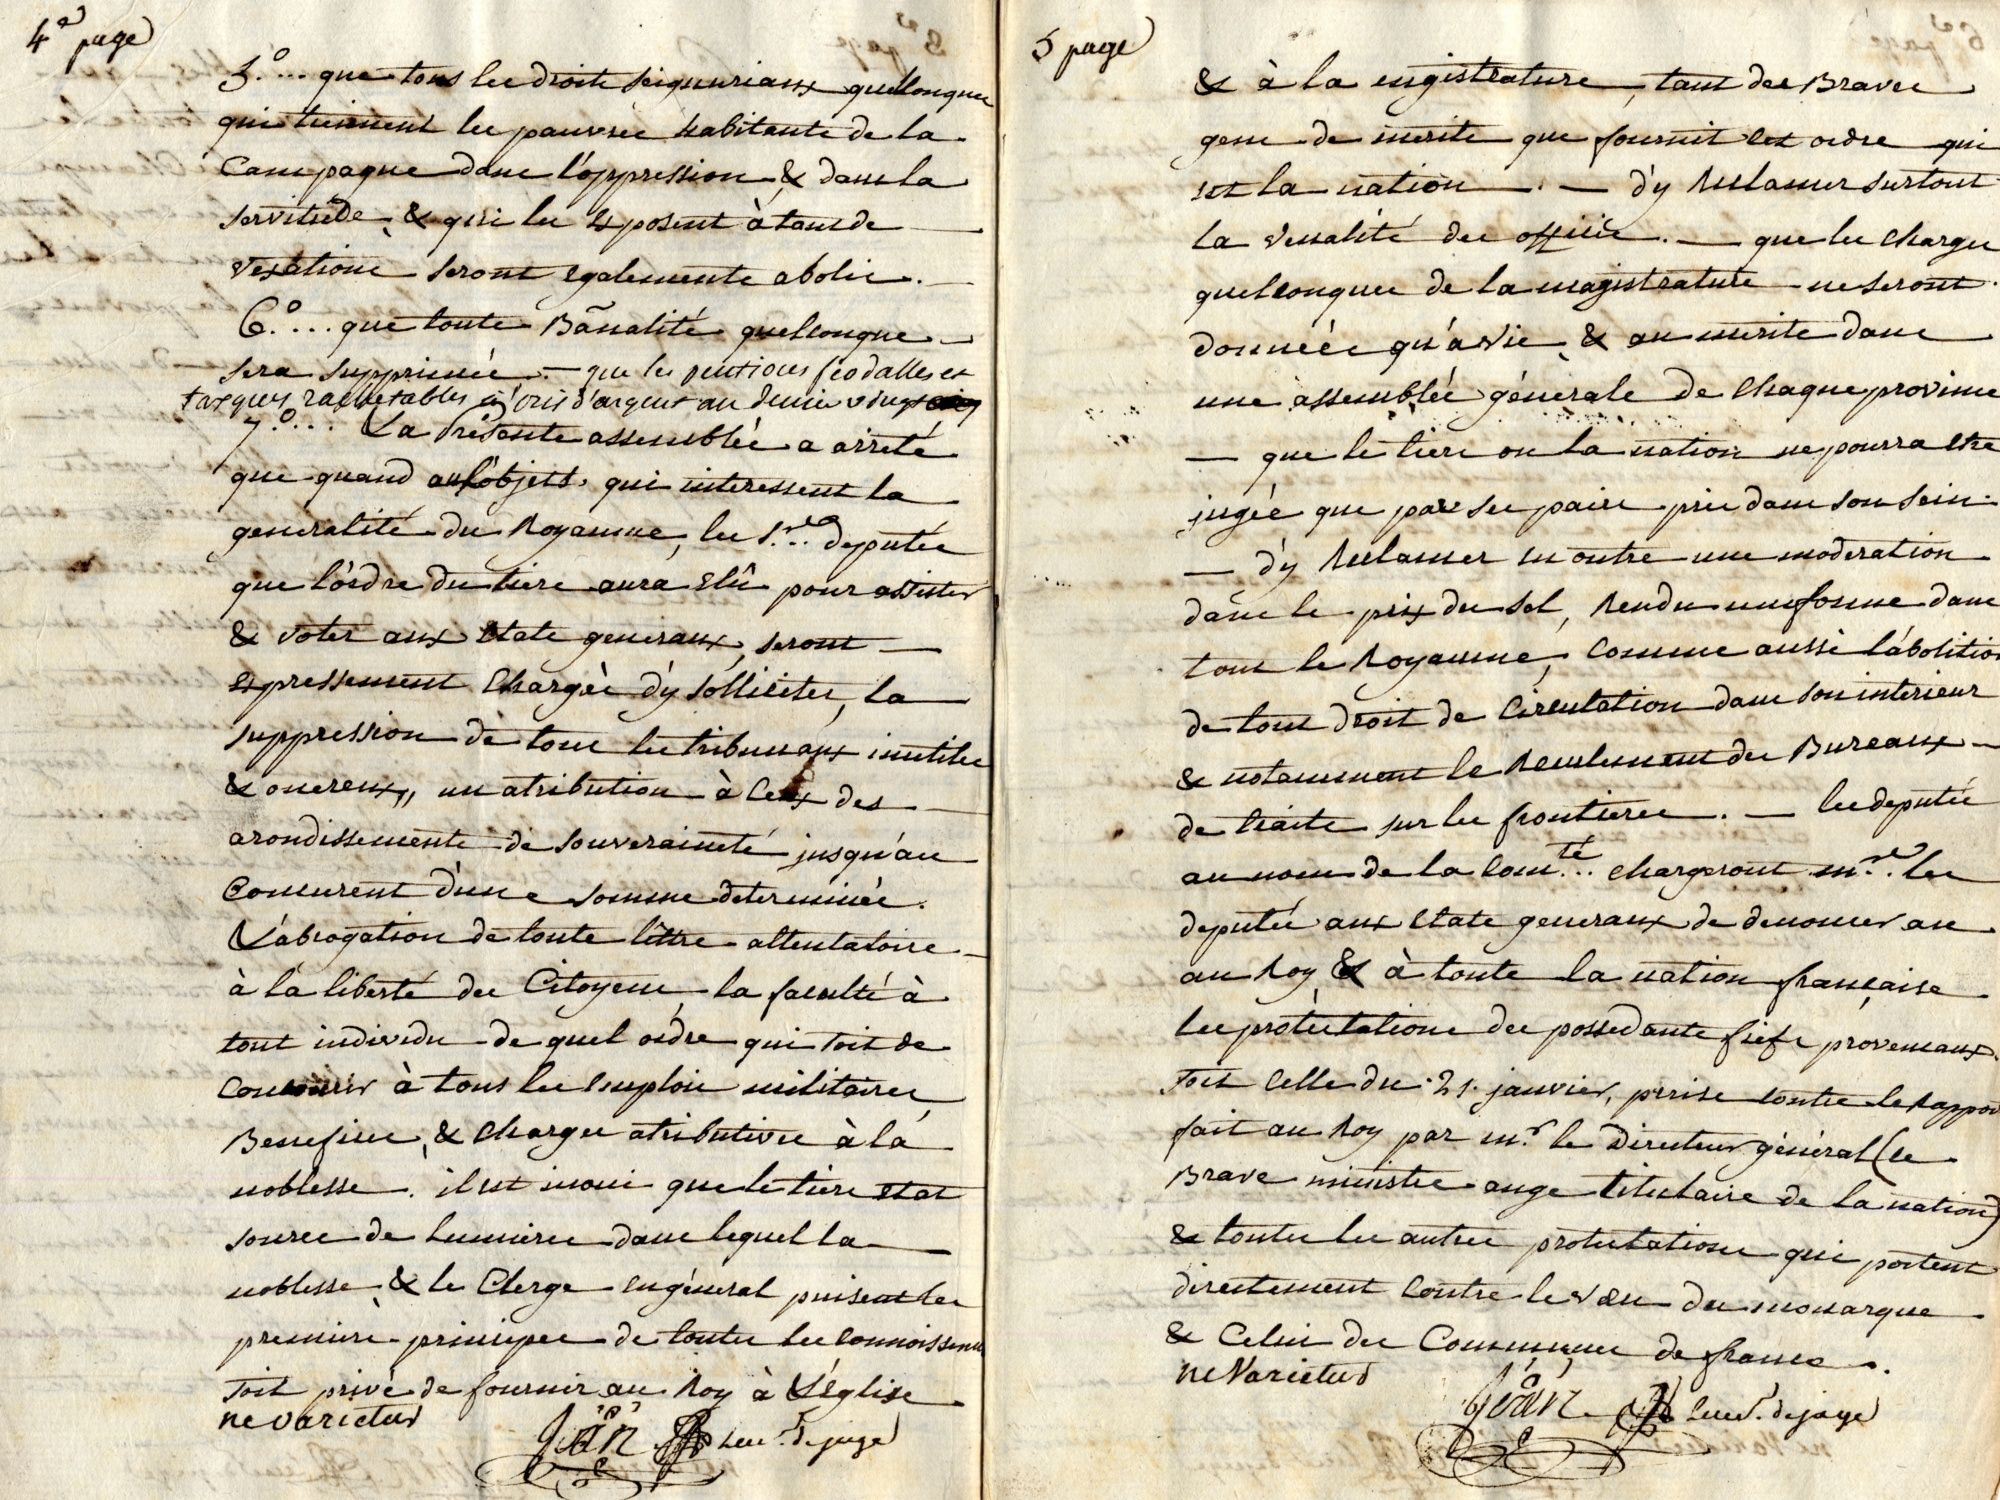 4e page
5.° ... que tous les droits seigneuriaux quelconques
qui tiennent les pauvres habitants de la
Campagne dans l'oppression & dans la
servitude & qui les exposent à tant de
vexations seront egalements abolis.
6.° ... que toute Banalité quelconque
sera supprimée. — que les pentions féodalles et
tasques rachetables à pris d'argent au denier vingt
7.° ... La Présente assemblée a arreté
que quand aux objets qui interessent la
generalité du Royaume, les Srs. deputés
que l'ordre du tiers aura elû pour assister
& voter aux Etats generaux, seront
expressement Chargés d'y solliciter, la
suppression de tous les tribunaux inutiles
& onereux, un atribution à Ceux des
arondissements de souveraineté jusqu'au
Concurent d'une somme determinée.
L'abrogation de toute lettre attentatoire
à la liberté des Citoyens, la faculté à
tout individu de quel ordre qui soit de
Concourir à tous les emplois militaires,
Benefices, & charges atributives à la
noblesse. il est inoui que le tiers etat
source de Lumieres dans lequel la
noblesse & le Clergé en géneral puisent les
premiers principes de toutes les connoissences
soit privé de fournir au Roy à L'église
ne varietur
Jean Lieut. de juge
5 page
& à la magistrature, tant des Braves
gens de merite que fournit cet ordre qui
est la nation. — d'y Reclamer surtout
la venalité des offices. — que les charges
quelconques de la magistrature ne seront
données qu'à vie & au merite dans
une assemblée générale de Chaque province
— que le tiers ou la nation ne pourra etre
jugée que par ses pairs pris dans son sein.
— d'y Reclamer en outre une moderation
dans le prix du sel, Rendu uniforme dans
tout le Royaume, Comme aussi l'abolition
de tout droit de Circulation dans son interieur
& notamment le Reculement des Bureaux
de traite sur les frontieres. — les deputés
au nom de la Com.té chargeront mrs. les
deputés aux Etats generaux de denoncer au
au Roy & à toute la nation française
les protestations des possedants fiefs provencaux
soit Celle du 21. janvier, prise contre le Rapport
fait au Roy par mr. le Directeur général (ce
Brave ministre ange titulaire de la nation)
& toutes les autres protestations qui portent
directement Contre le vœu du monarque
& Celui des Communes de france.
ne Varietur
Jean Lieut. de juge